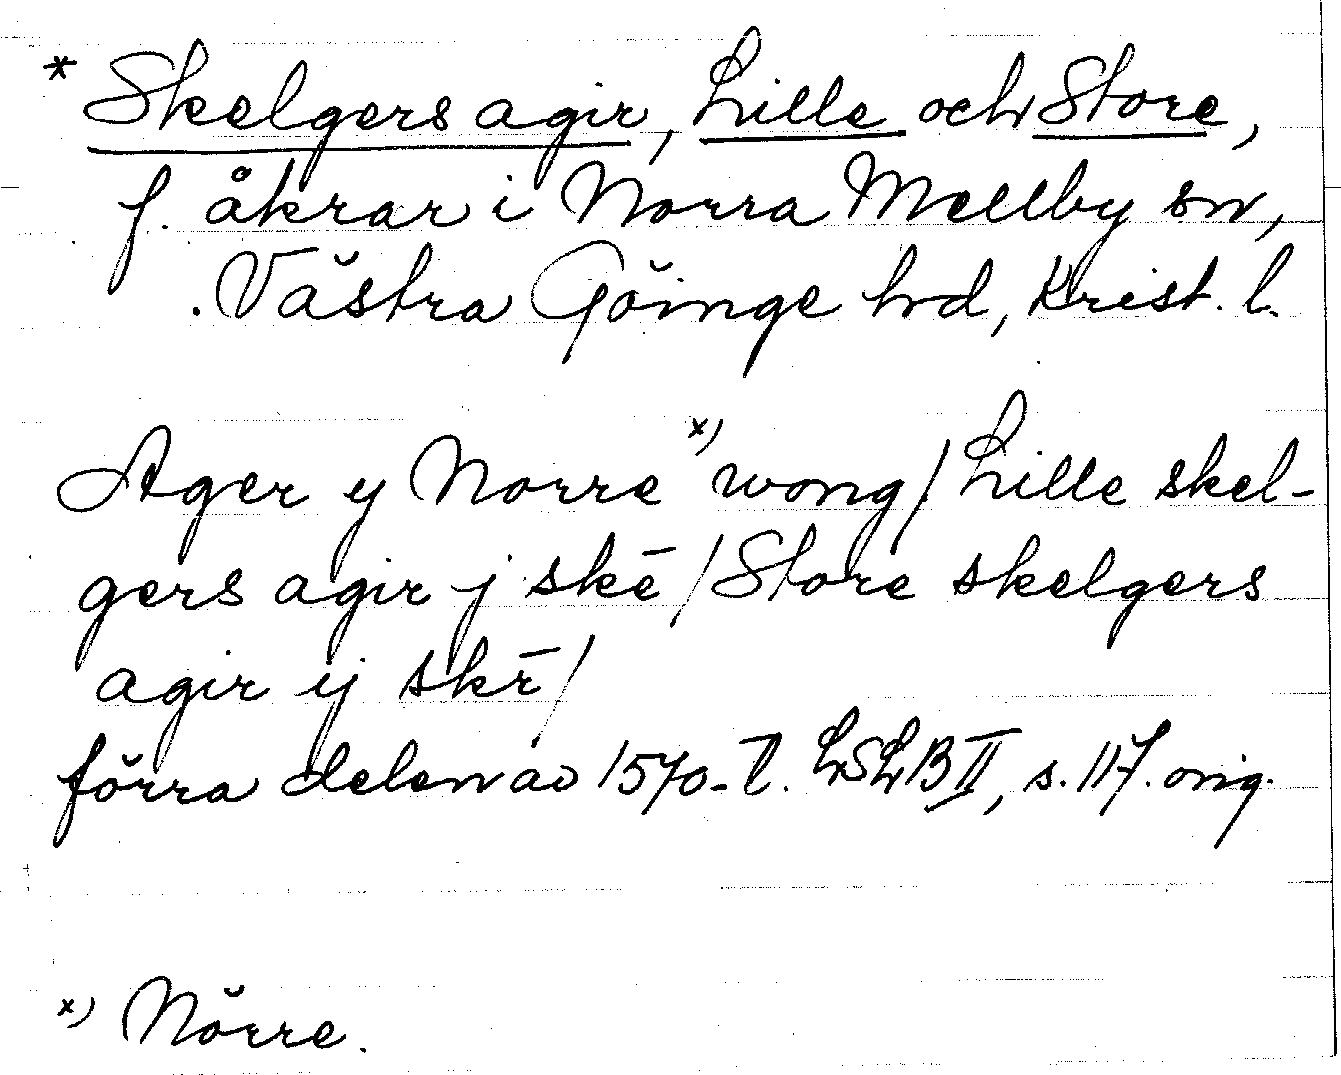 * Skelgers agir, Lille och Store,
f. åkrar i Norra Mellby sn,
Västra Göinge hd, Krist. l.
Ager y Norre x) wong / Lille skel-
gers agir j skē / Store skelgers
agir ij skē /
förra delen av 1570-t. LSLB II, s. 117. orig.
x) Nörre.